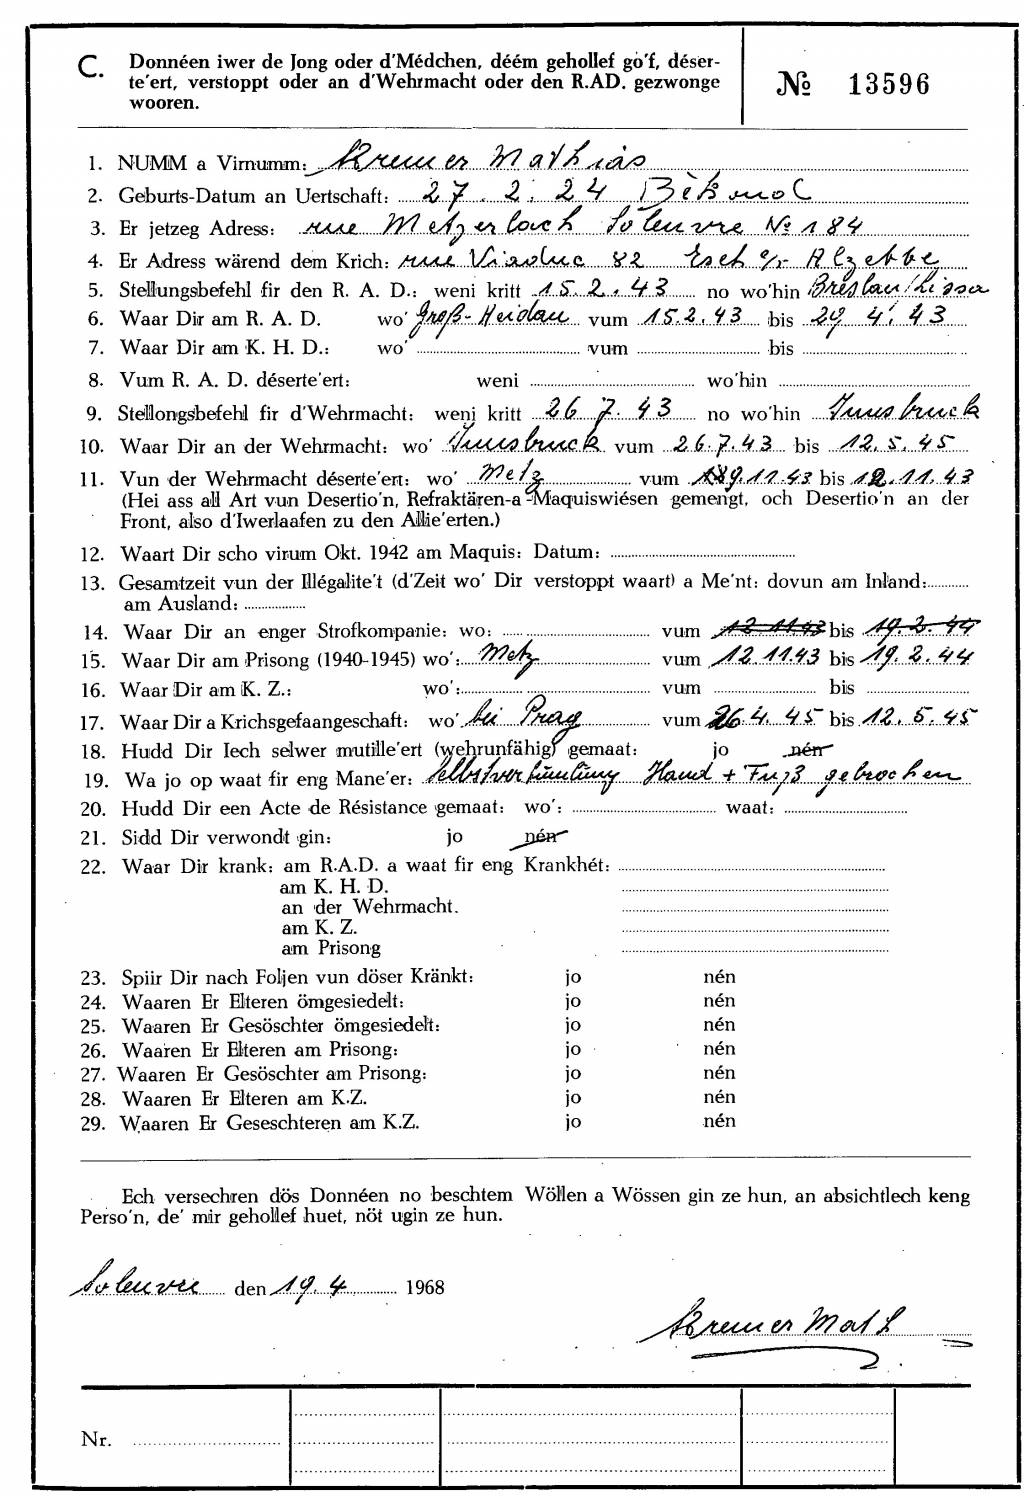 C. Donnéen iwer de Jong oder d'Médchen, déém gehollef go'f, déser-
te'ert, verstoppt oder an d'Wehrmacht oder den R.AD. gezwonge
wooren.
№ 13596
1. NUMM a Virnumm: Kremer Mathias
2. Geburts-Datum an Uertschaft: 27.2.24
3. Er jetzeg Adress: rue Metzerlach Soleuvre № 184
4. Er Adress wärend dem Krich: rue Viaduc 82 Esch s/ Alzette
5. Stellungsbefehl fir den R. A. D.: weni kritt 15.2.43 no wo'hin Breslau/Lissa
6. Waar Dir am R. A. D. wo' Groß-Heidau vum 15.2.43 bis 29 4. 43
7. Waar Dir am K. H. D.: wo' vum bis
8. Vum R. A. D. déserte'ert: weni wo'hin
9. Stellongsbefehl fir d'Wehrmacht: weni kritt 26 7. 43 no wo'hin Innsbruck
10. Waar Dir an der Wehrmacht: wo' Innsbruck vum 26.7.43 bis 12.5.45
11. Vun der Wehrmacht déserte'ert: wo' Metz vum 9.11.43 bis 12.11.43
(Hei ass all Art vun Desertio'n, Refraktären-a Maquiswiésen gemengt, och Desertio'n an der
Front, also d'Iwerlaafen zu den Allie'erten.)
12. Waart Dir scho virum Okt. 1942 am Maquis: Datum:
13. Gesamtzeit vun der Illégalite't (d'Zeit wo' Dir verstoppt waart) a Me'nt: dovun am Inland:
am Ausland:
14. Waar Dir an enger Strofkompanie: wo: vum 12 11 43 bis 19.2.44
15. Waar Dir am Prisong (1940-1945) wo': Metz vum 12.11.43 bis 19.2.44
16. Waar Dir am K. Z.: wo': vum bis
17. Waar Dir a Krichsgefaangeschaft: wo' bei Prag vum 26.4.45 bis 12.5.45
18. Hudd Dir Iech selwer mutille'ert (wehrunfähig) gemaat: jo nén
19. Wa jo op waat fir eng Mane'er: Selbstverstümlung Hand + Fuß gebrochen
20. Hudd Dir een Acte de Résistance gemaat: wo': waat:
21. Sidd Dir verwondt gin: jo nén
22. Waar Dir krank: am R.A.D. a waat fir eng Krankhét:
am K. H. D.
an der Wehrmacht.
am K. Z.
am Prisong
23. Spiir Dir nach Foljen vun döser Kränkt: jo nén
24. Waaren Er Elteren ömgesiedelt: jo nén
25. Waaren Er Gesöschter ömgesiedelt: jo nén
26. Waaren Er Elteren am Prisong: jo nén
27. Waaren Er Gesöschter am Prisong: jo nén
28. Waaren Er Elteren am K.Z. jo nén
29. Waaren Er Geseschteren am K.Z. jo nén
Ech versechren dös Donnéen no beschtem Wöllen a Wössen gin ze hun, an absichtlech keng
Perso'n, de' mir gehollef huet, nöt ugin ze hun.
Soleuvre den 19.4 1968
Kremer Math
Nr.